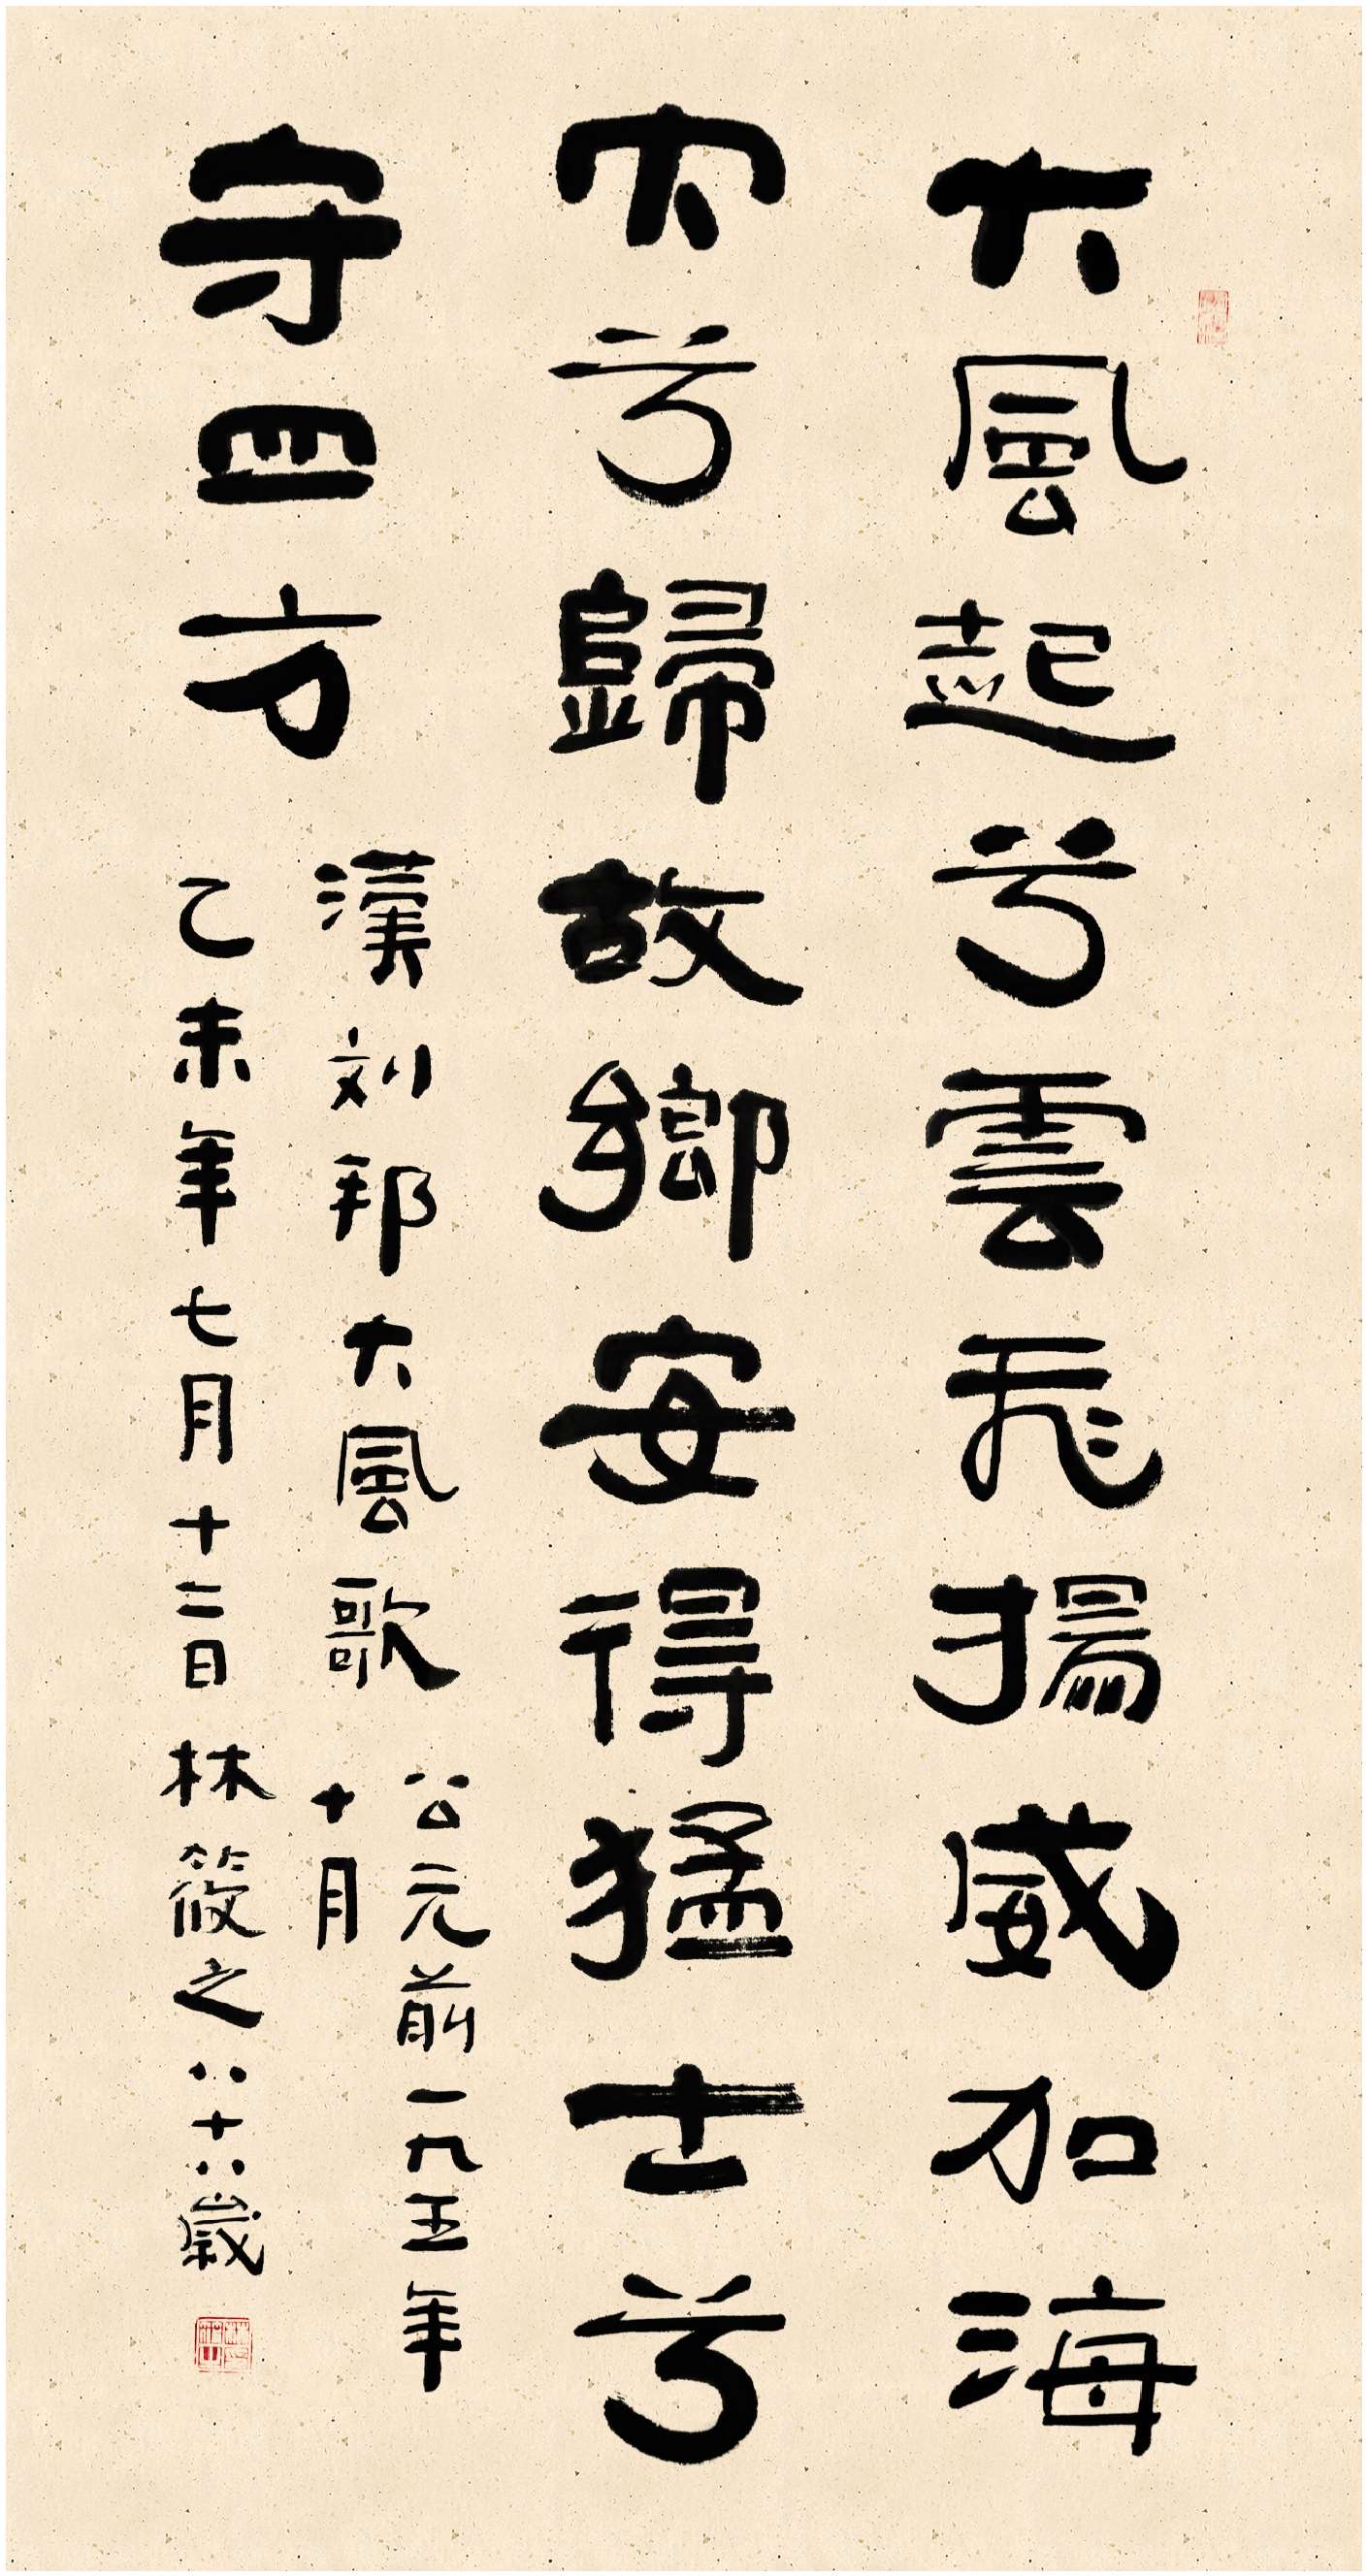 大風起兮雲飛揚威加海
內兮歸故鄉安得猛士兮
守四方
漢刘邦大風歌
公元前一九五年
十月
乙未年七月十二日林筱之八十八歲